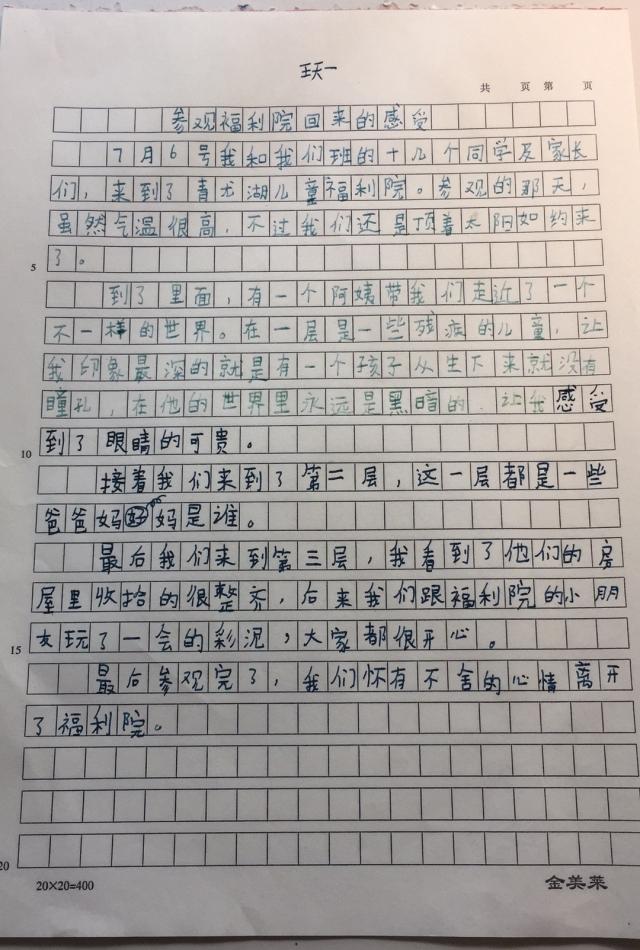 王天一
共 页 第 页
参观福利院回来的感受
7月6号我和我们班的十几个同学及家长
们，来到了青尤湖儿童福利院。参观的那天，
虽然气温很高，不过我们还是顶着太阳如约来
5
了。
到了里面，有一个阿姨带我们走近了一个
不一样的世界。在一层是一些残疾的儿童，让
我印象最深的就是有一个孩子从生下来就没有
瞳孔，在他的世界里永远是黑暗的．让我感受
10
到了眼睛的可贵。
接着我们来到了第二层，这一层都是一些
爸爸妈妈是谁。
最后我们来到第三层，我看到了他们的房
屋里收拾的很整齐，后来我们跟福利院的小朋
15
友玩了一会的彩泥，大家都很开心。
最后参观完了，我们怀有不舍的心情离开
了福利院。
20
20×20=400
金美莱